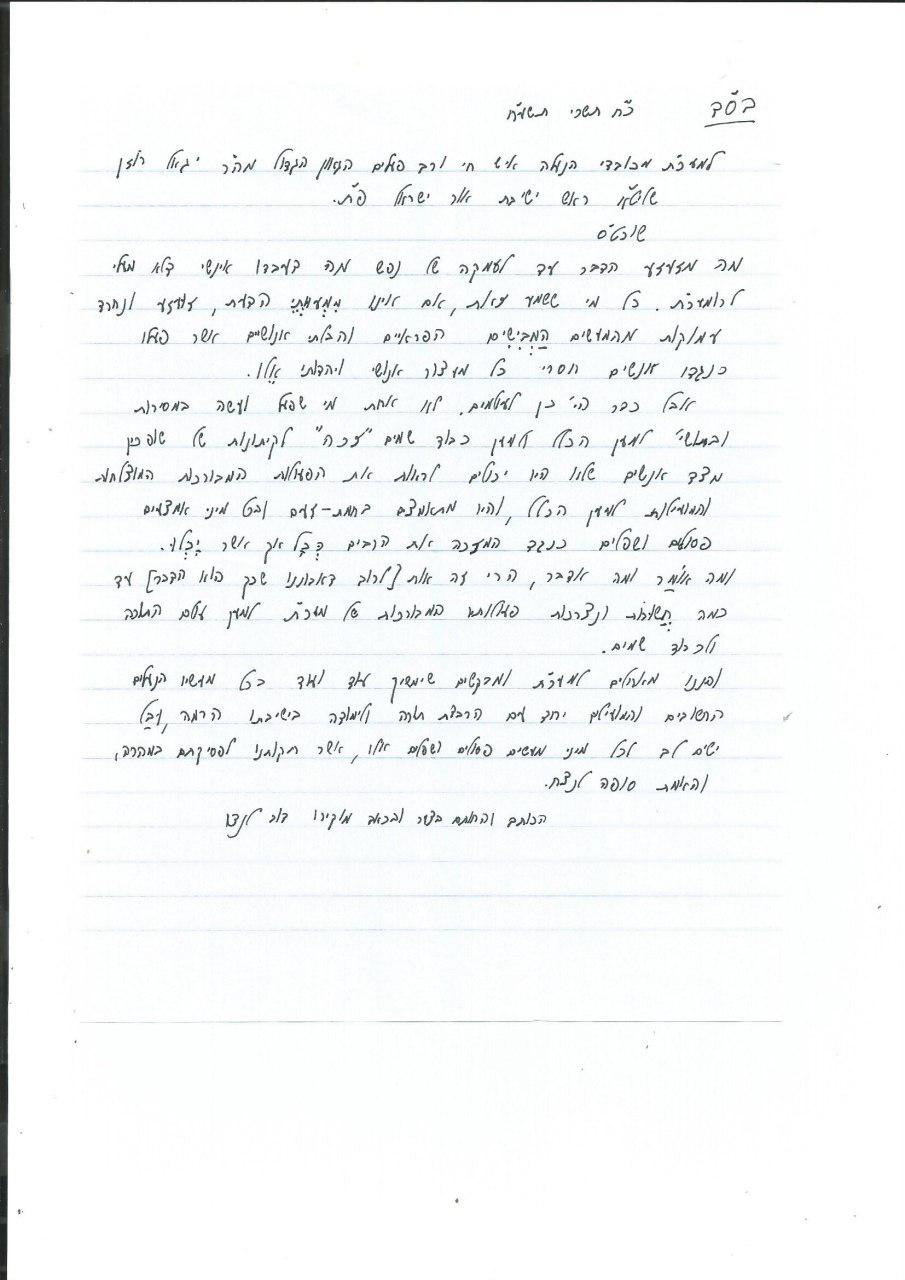 בס"ד כ"ח תשרי תשע"ח
למע"כת מכובדי הנעלה איש חי ורב פעלים הגאון הגדול מהר"ר יגאל רוזן
שליט"א ראש ישיבת אור ישראל פ"ת.
שוכט"ס
מה מזעזע הדבר עד לעמקה של נפש מה דעבדו אינשי דלא מעלי
לרומע"כת. כל מי ששמע זאת, אם אינו מְמְעַמְתֵּי הדעת, זועזע ונחרד
עמוקות מהמעשים הַמְבִישִׁים הפראיים והבלתי אנושיים אשר פעלו
כנגדו אנשים חסרי כל מעצור אנושי ויהדותי אֵלּוּ.
אבל כבר הי' כן לעולמים. לא אחת מי שפעל ועשה במסירות
ובתושי' למען הכלל ולמען כבוד שמים "זכה" לקיתונות של שופכין
מצד אנשים שלא היו יכולים לראות את הפעולות המבורכות המוצלחות
והמועילות למען הכלל, והיו מתאמצים בחמת-זעם ובכל מיני אמצעים
פסולים ושפלים כנגד המזכה את הרבים כְּכָל אך אשר יָכְלוּ.
ומה אוֹמַר ומה אדבר, הרי זה אות [לרוב דאבוננו שכך הוא הדבר] עד
כמה חֲשׁוּבוֹת ונצרכות פעולותיו המבורכות של מע"כת למען עולם התורה
ולכבוד שמים.
והננו מאחלים למע"כת ומבקשים שימשיך עוד ועוד בכל מעשיו הנעלים
החשובים והמועילים יחד עם הרבצת תורה ולימודה בישיבתו הרמה, וּבַל
ישים לב לכל מיני מעשים פסולים ושפלים אלו, אשר תקותנו לפסיקתם במהרה,
והאמת סופה לנצח.
הכותב והחותם בצער ובכאב מוקירו דוב לנדו